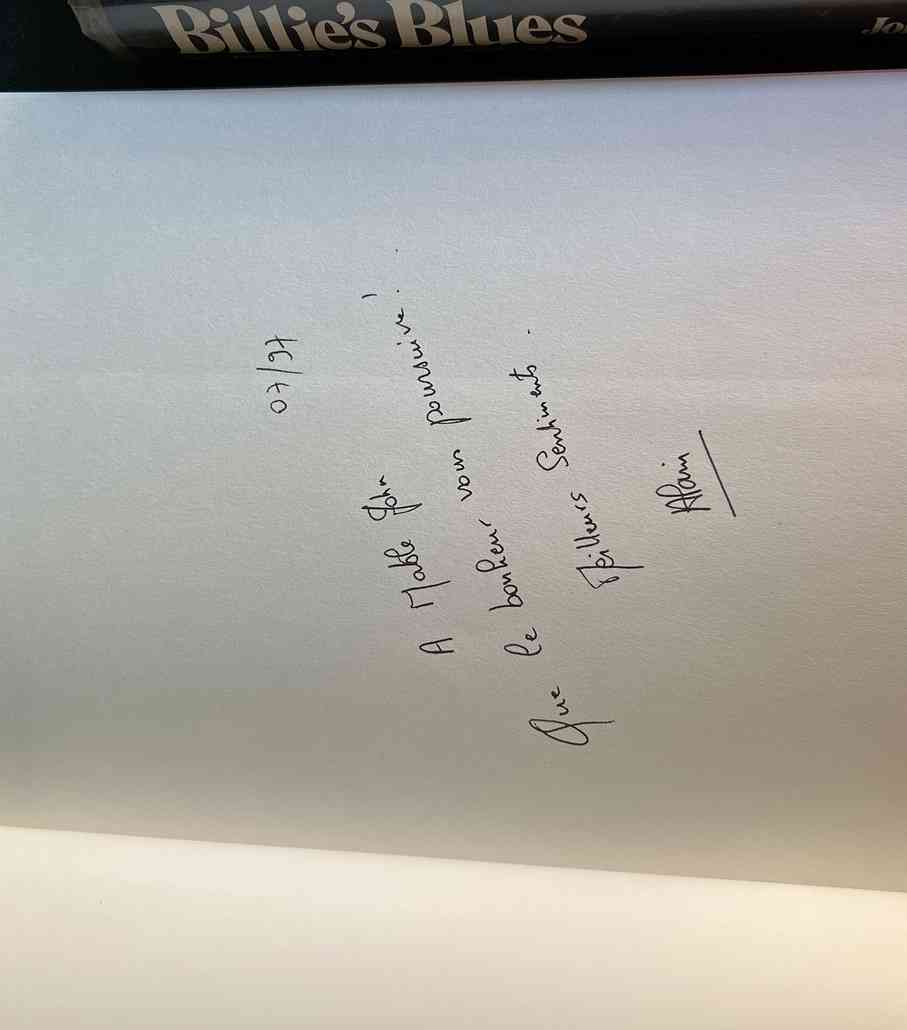 Billie's Blues
Jo
07/97
A Mable John
Que le bonheur vous poursuive !
Meilleurs Sentiments.
Alain